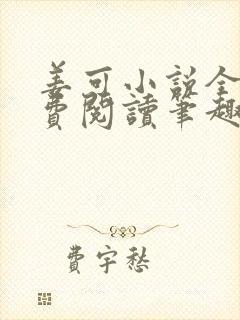 姜可小说全
費閱讀筆趣
費宇愁